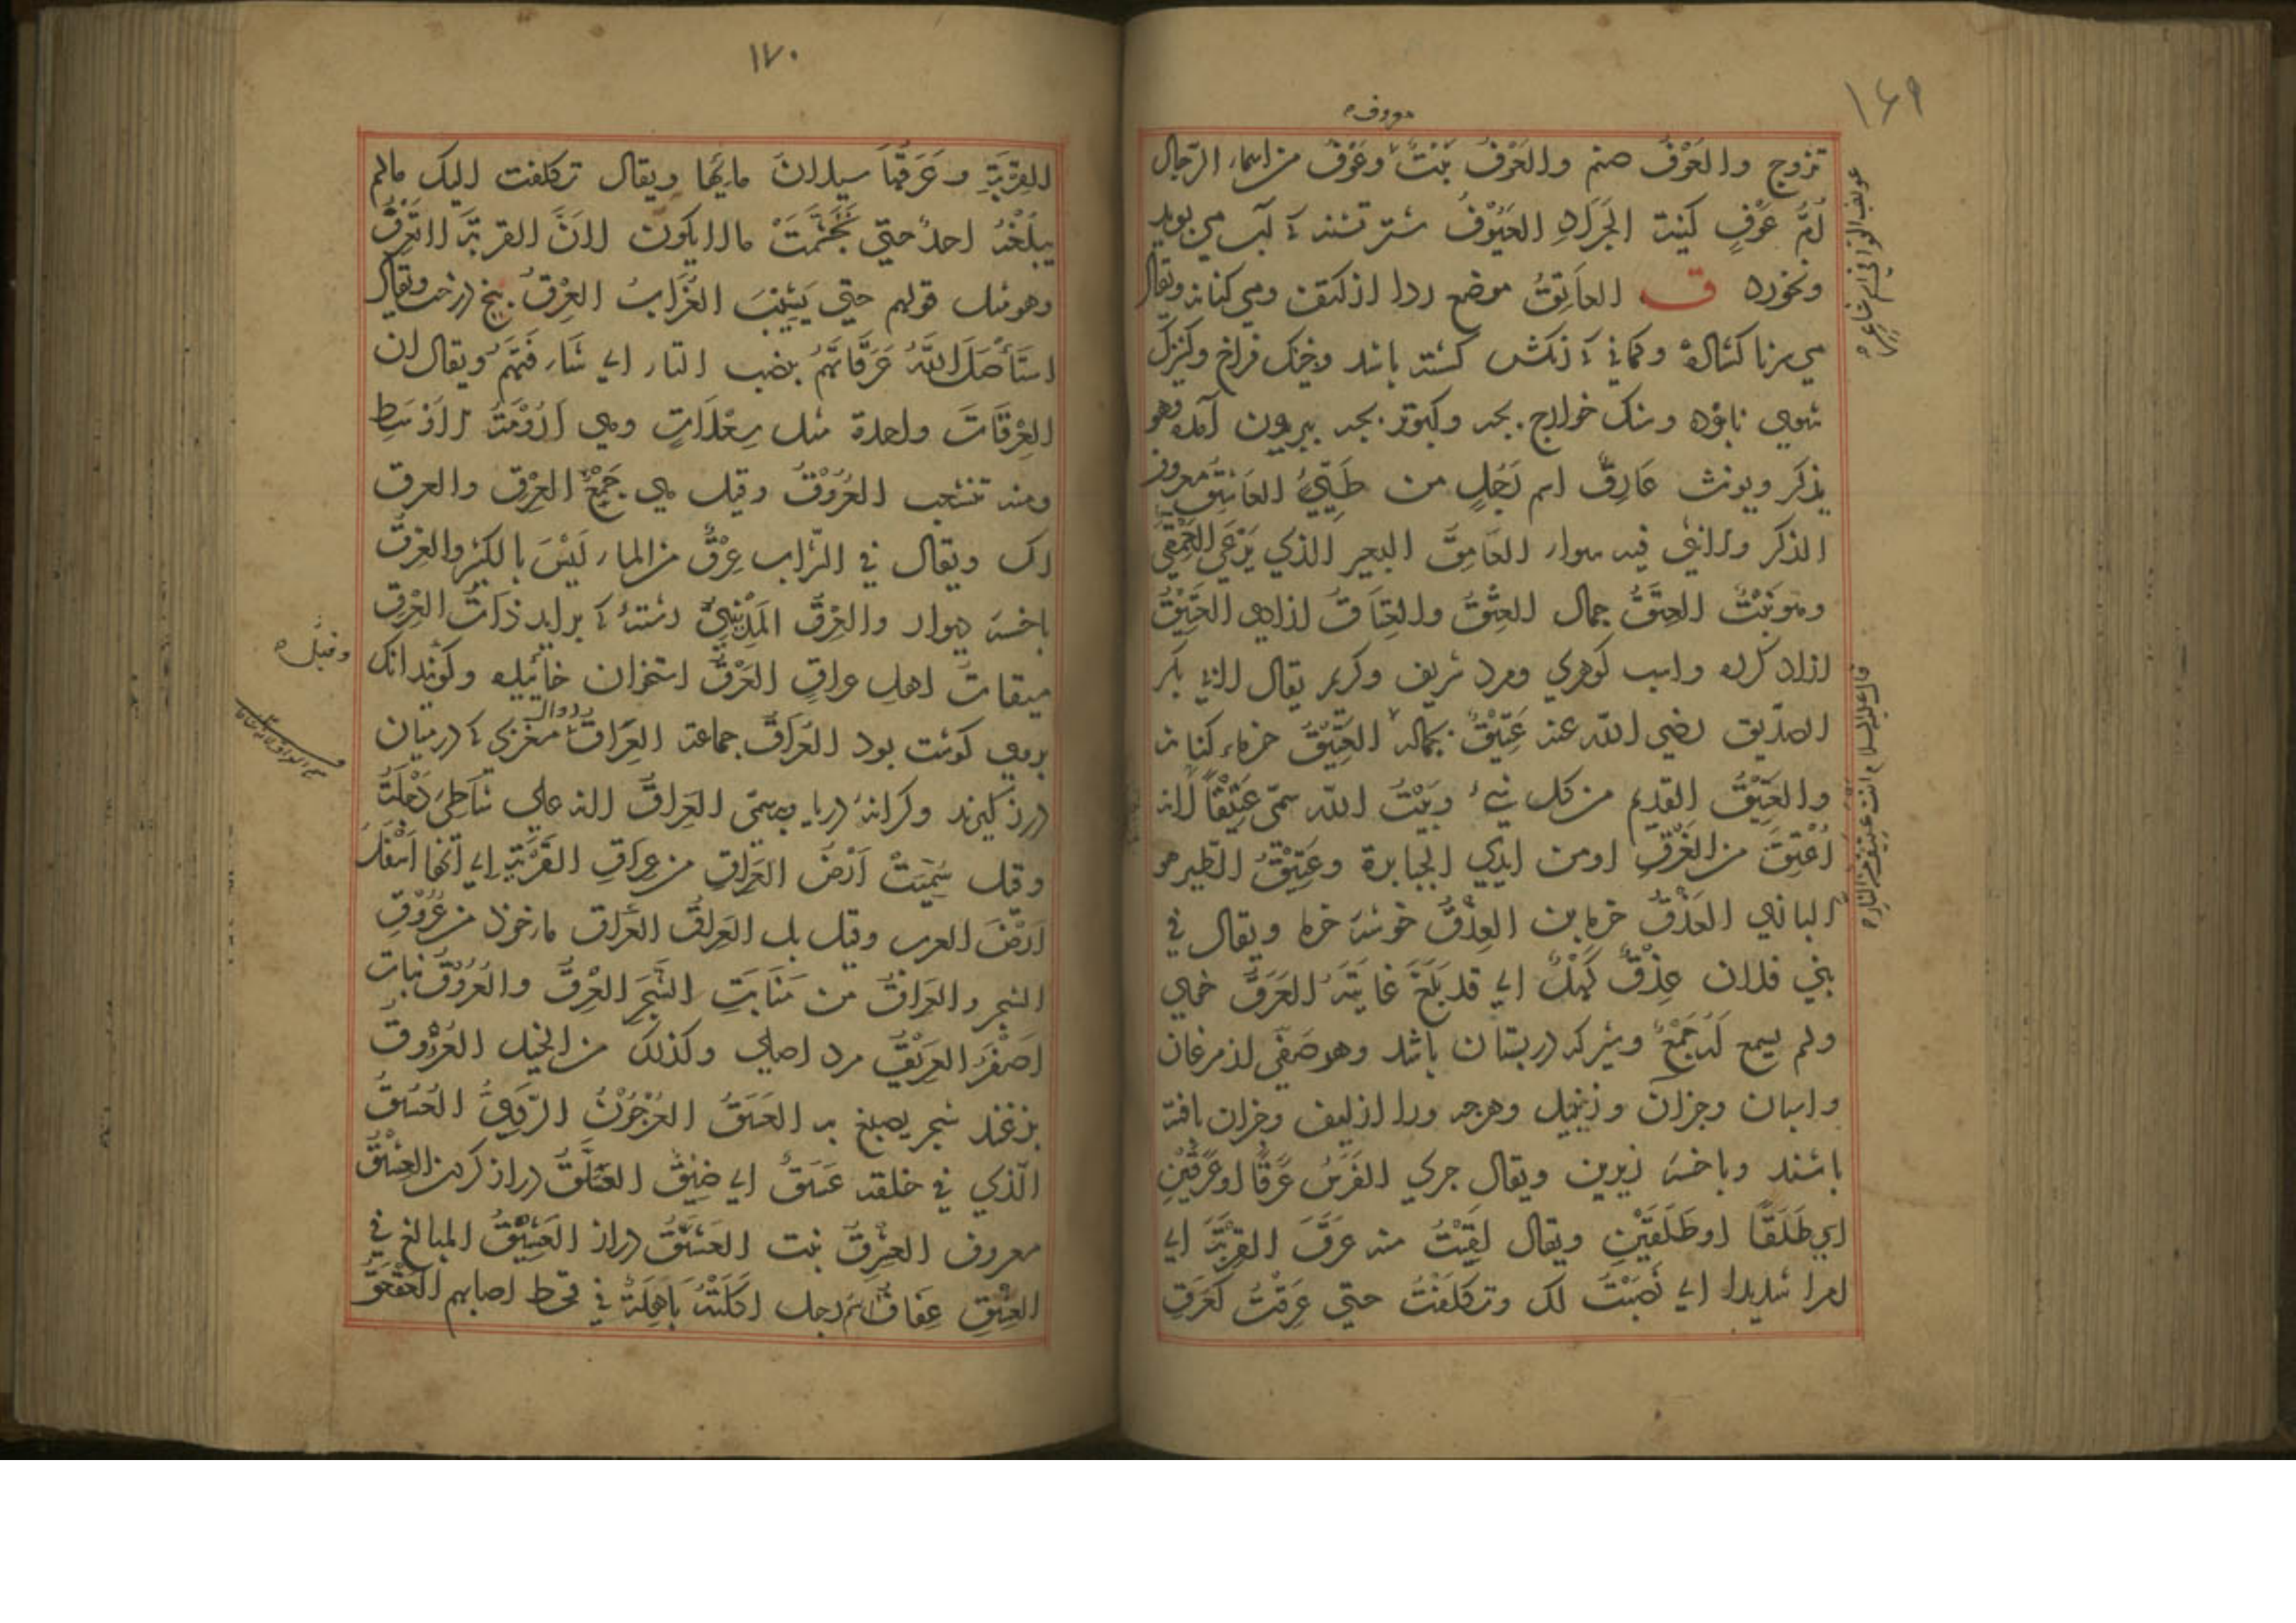 ١٦٩
معروف
تزوج والعَوْفُ صنم والعَوْفُ نَبْتٌ وعَوْفٌ من اسماء الرّجال
اُمُّ عَوْفٍ كنية الجَرَادِ العَيُوْفُ شتر تشنه كه آب مي بويد
ونخورد ق العاتِقُ موضع ردا از كتف ومي كنانه ويقال
مي برنا كشاده وكماني كه زنكش كشته باشد وخيك فراخ وكنيزك
شوي نابوده ومشك خوارج بجه وكبوتر بجه بيرون آمده وهو
يذكر ويونث عَارِقٌ اسم رَجُلٍ من طَيِّئٍ العَاشِقُ معروف
الذكر والانثى فيه سواء العَامِقُ البعير الذي يَرْعَى العِمْقَى
وهو نَبْتٌ العِتْقُ جمال العِتْقُ والعِتَاقُ ازادي العَتِيْقُ
ازاد كرده واسب كوهري ومرد شريف وكريم يقال لابي بكر
الصدّيق رضي الله عنه عَتِيْقٌ بجماله العَتِيْقُ خرماء كنانه
والعَتِيْقُ القديم من كل شيء وبَيْتُ الله سمّي عَتِيْقًا لانه
اُعْتِقَ من الغَرْقِ او من ايدي الجبابرة وعَتِيْقُ الطّير هو
البازي العَذْقُ خرمابن العِذْقُ خوشه خرما ويقال في
بني فلان عِذْقٌ كَهْلٌ اي قد بَلَغَ غَايَتَهُ العَرَقُ خمي
ولم يسمع لَه جَمْعٌ وشيركه در پستان باشد وهر صَفّي از مرغان
واسبان وجزان وزنبيل وهرجه ورا از ليف وجزان بافته
باشند وباخسهٔ زيرين ويقال جري الفَرَسُ عَرَقًا او عَرَقَيْنِ
اي طَلَقًا او طَلَقَيْنِ ويقال لَقِيْتُ منه عَرَقَ القِرْبَةِ اي
امرا شديدا اي نَصِبْتُ لك وتكلفْتُ حتي عَرِقْتُ كعَرَقِ
عويف القوافي اسم شاعر
قال عليه السلام انت عتيق من النار
١٧٠
القِرْبَةِ وعَرَقُهَا سيلان مايها ويقال تكلفت اليك مالم
يبلغْهُ احدٌ حتي تَجَشَّمْتَ مالا يكون لانّ القربة لا تَعْرَقُ
وهو مثل قولهم حتي يَشِيْبَ الغُرَابُ العِرْقُ بيخ درخت ويقال
استَأْصَلَ اللهُ عَرَقَاتَهُمْ بنصب التاء اي شَأْفَتَهُمْ ويقال ان
العِرْقَاتَ واحدة مثل سِعْلَاتٍ وهي اَرُوْمَةُ الاَوْسَطِ
ومنه تنشعب العُرُوْقُ وقيل هي جَمْعُ العِرْقِ والعرق
رك ويقال في الشراب عِرْقٌ من الماء لَيْسَ بالكثير والعِرْقُ
باخسه ديوار والعِرْقُ المَدِيْنِيُّ رشتهٔ كه برايد ذاتُ العِرْقِ
ميقاتُ اهل عراقٍ العَرْقُ استخوان خائيده وكويند انك
بروي كوشت بود العُرَاقُ جماعة العِرَاقُ مغزي كه درميان
دوال
درز كيرند وكرانهٔ دريا وبه سمّي العِرَاقُ لانه علي شاطئ دَجْلَةَ
وقيل سُمِّيَتْ اَرْضُ العِرَاقِ من عِرَاقِ القِرْبَةِ اي انّها اَسْفَلُ
اَرْضِ العرب وقيل بل العِرَاقُ العراق ماخوذ من عُرُوْقِ
الشجر والعِرَاقُ من مَنَابِتِ الشَّجَرِ العِرْقُ والعُرُوْقُ نبات
اصْفَرُ العَرِيْقُ مرد اصلي وكذلك من الخيل العُرْزُوقُ
شجر يصبغ به العَسَقُ العُرْجُوْنُ الرّدِيُّ العَسَقُ
الّذي في خلقه عَسَقٌ اي ضِيْقٌ العَشَنَّقُ دراز كردن العِشْقُ
معروف العِشْرِقُ نبت العَشَنَّقُ دراز العِشِّيْقُ المبالغ في
العِشْقِ عِفَاقٌ اسم رجل اكَلَتْهُ بَاهِلَةُ في قحط اصابهم العَقْعَقُ
وقيل